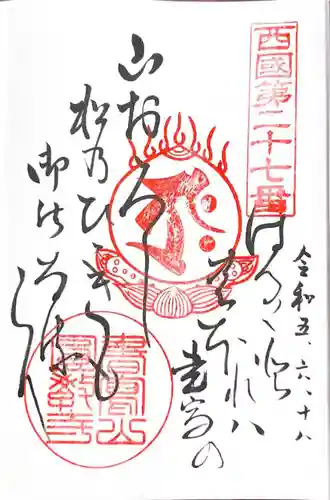 西國第二十七番
令和五、六、十八
はる〲と
登れハ
書寫の
山おろし
松乃ひゞきも
御法なるらん
書寫山
圓教寺